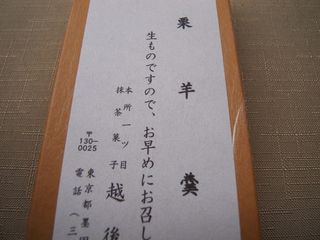 栗羊羹
生ものですので、お早めにお召し
本所一ツ目
抹茶菓子
越後
〒130-0025
東京都墨田
電話(三